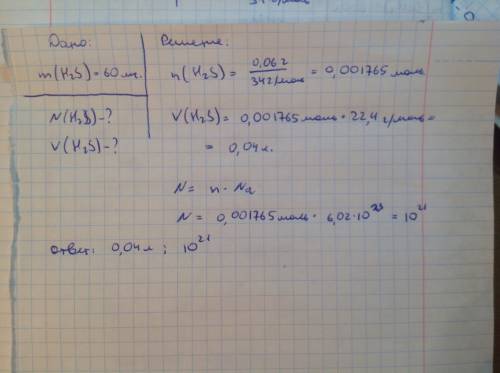 Дано:
m(H₂S) = 60 мг.
N(H₂S) - ?
V(H₂S) - ?
Решение:
n(H₂S) = 0,06 г / 34 г/моль = 0,001765 моль
V(H₂S) = 0,001765 моль · 22,4 г/моль =
= 0,04 л.
N = n · Na
N = 0,001765 моль · 6,02·10²³ = 10²¹
ответ: 0,04 л ; 10²¹